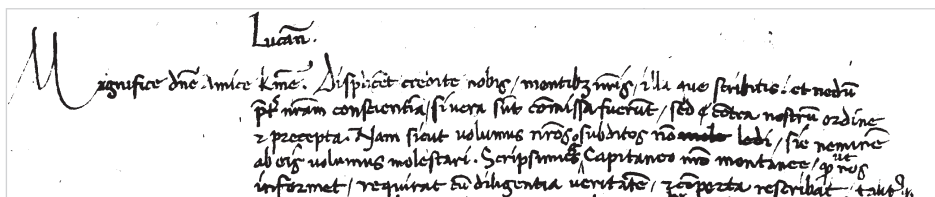 Lucan̄.
Magnifice dn̄e Amice kr̄me. Displicēt credite nobis, montibꝫ nr̄is, illa que scribitis. et nedū
p̄t̄ nr̄am conscientiā, si vera sūt com̄issa fuerūt, sed cōtra nostrū ordinē
⁊ precepta. Nam sicut volumus nr̄os subditos nō ledi, sic neminē
ab eis volumus molestari. Scripsimus Capitaneo nr̄o montanee, ut nos
informet, requirat cū diligentia veritatē, ⁊ comperta rescribat,